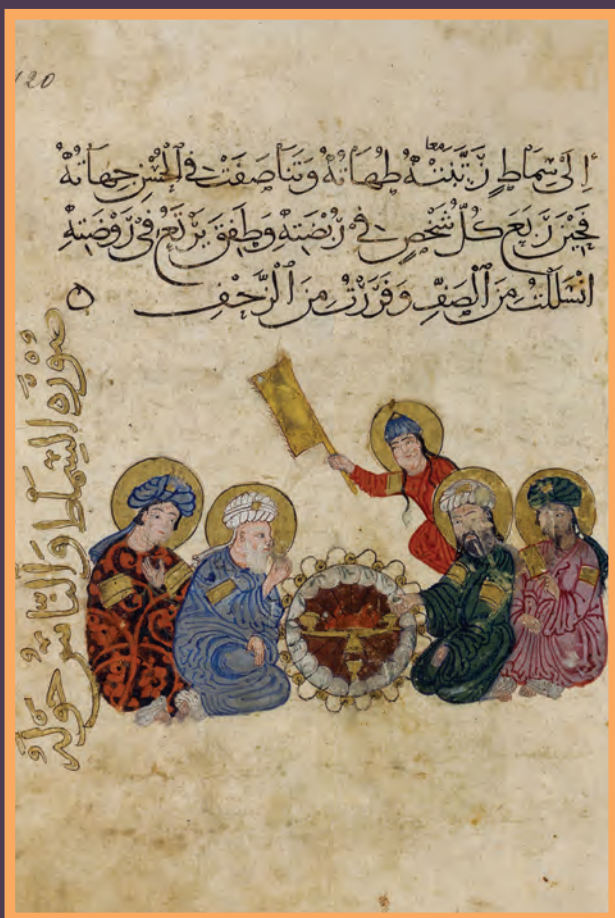 120
إِلَى سِمَاطٍ زَيَّنَتْهُ طُهَاتُهُ وَتَنَاصَفَتْ فِي الْحُسْنِ جِهَاتُهُ
فَحِينَ رَبَعَ كُلُّ شَخْصٍ فِي رُبْضَتِهِ وَطَفِقَ يَرْتَعُ فِي رَوْضَتِهِ
انْسَلَلْتُ مِنَ الصَّفِّ وَفَرَرْتُ مِنَ الزَّحْفِ
صُورَة السِّمَاط وَالنَّاسُ حَوْلَهُ